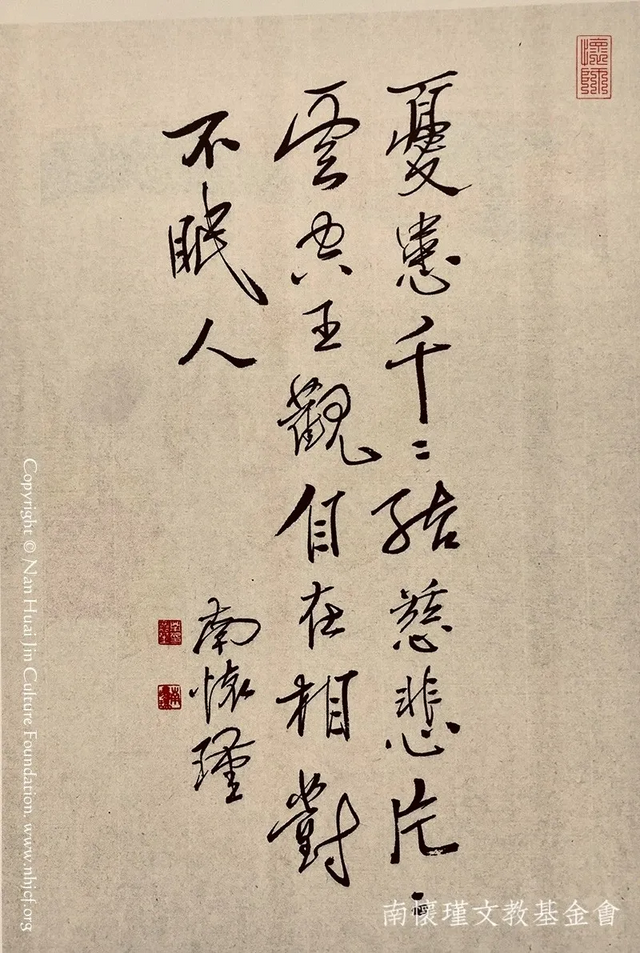 懷師
憂患千〻結慈悲片〻
雲空王觀自在相對
不眠人
南懷瑾
南懷瑾文教基金會
Copyright © Nan Huai Jin Culture Foundation. www.nhjcf.org